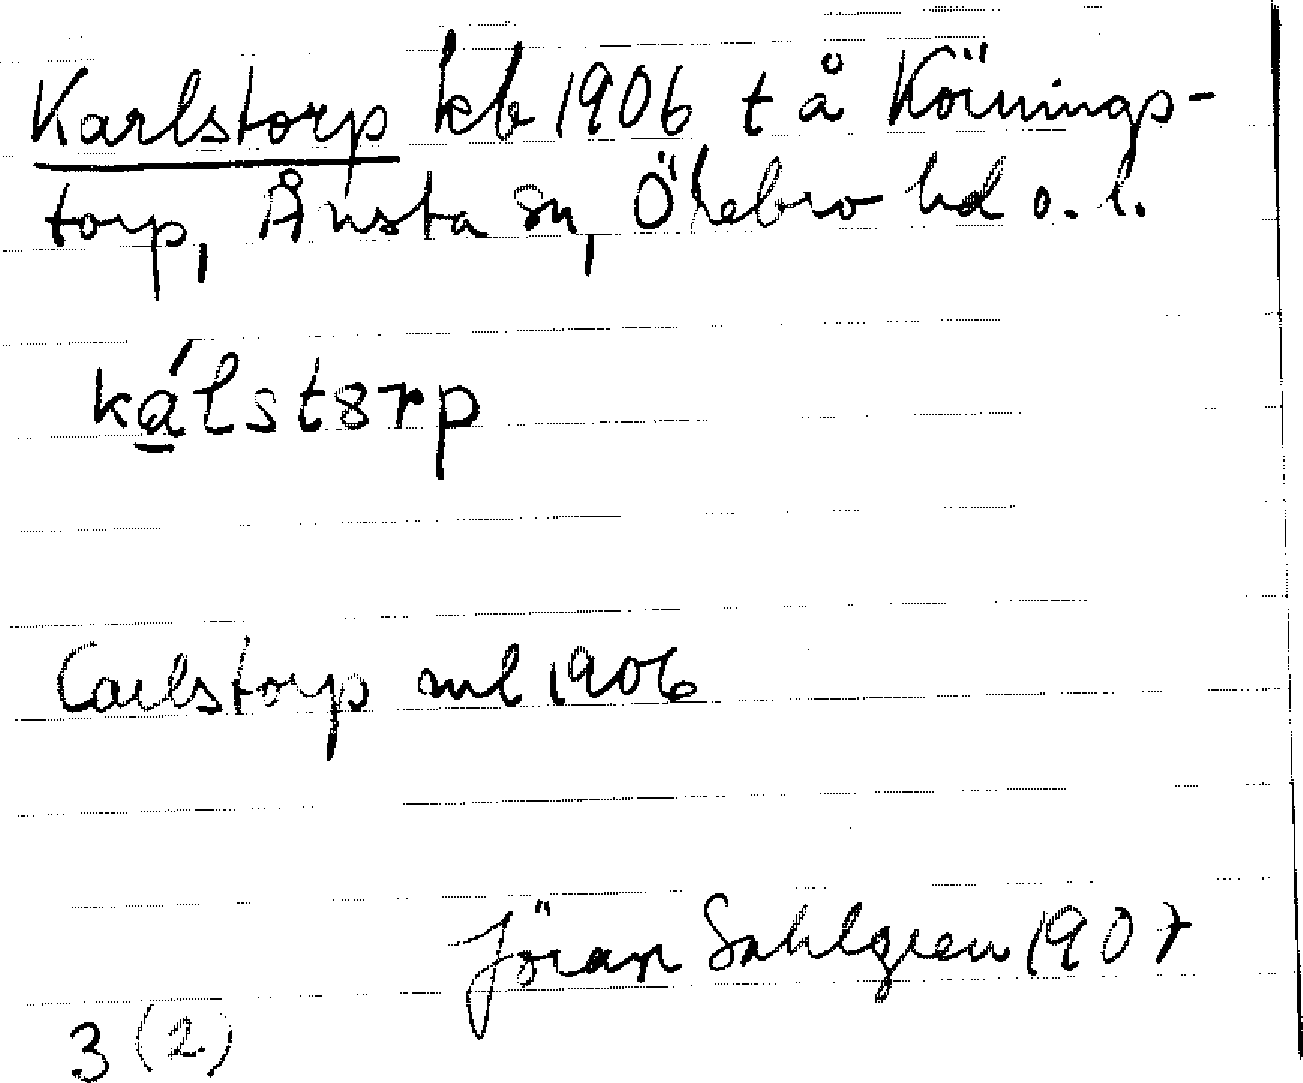 Karlstorp kb 1906 t å Körnings-
torp, Ånsta sn, Örebro hd o. l.
kálstȣrp
Carlstorp ml 1906
Jöran Sahlgren 1907
3 (2)